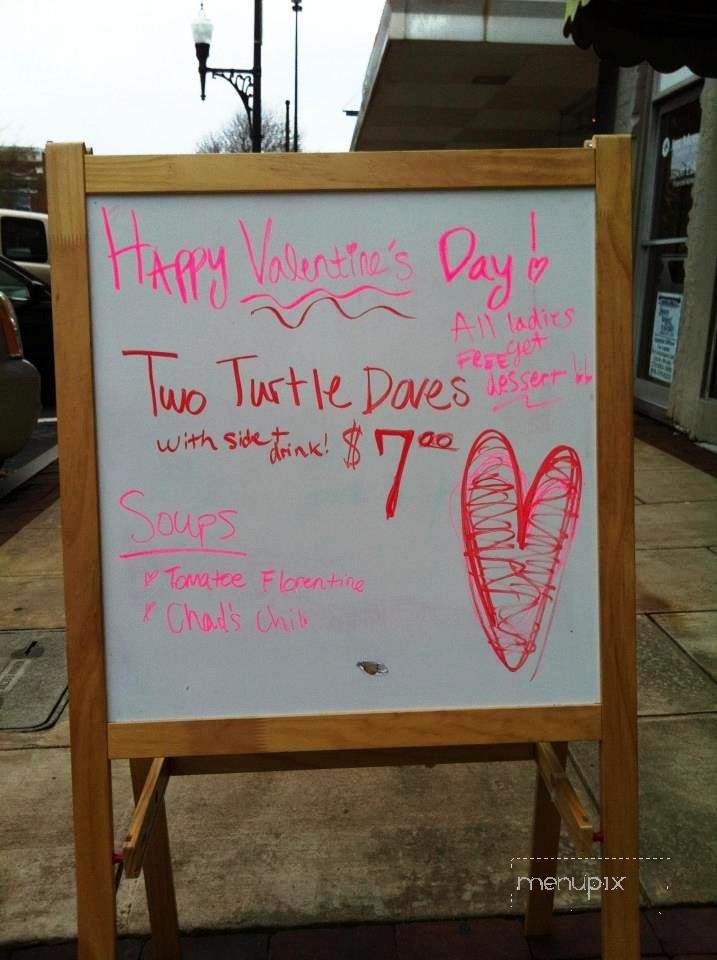 Happy Valentine's Day!
All ladies
get
FREE
dessert !!
Two Turtle Doves
with side + drink! $7.00
Soups
Tomatoe Florentine
Chad's Chili
menupix